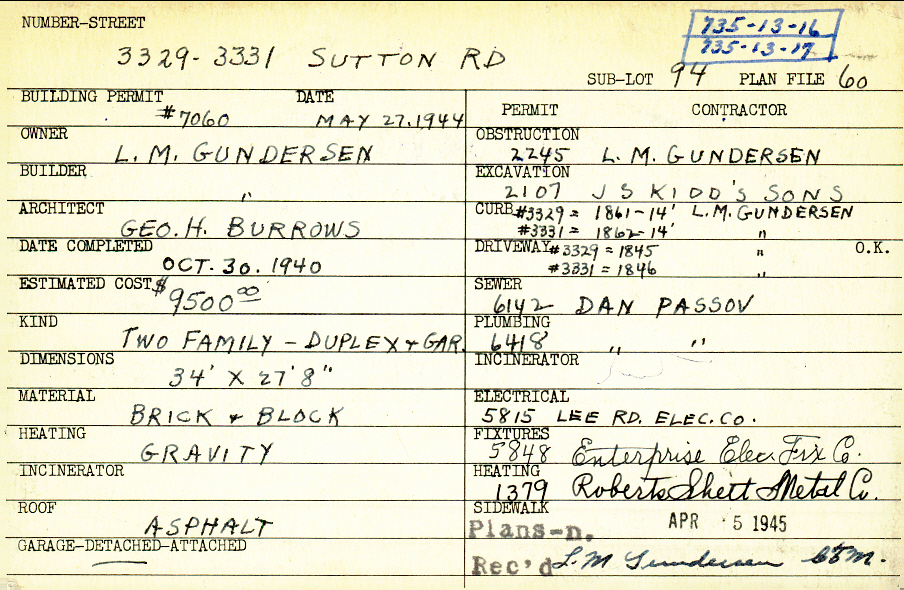 NUMBER-STREET
735-13-16
735-13-17
3329-3331 SUTTON RD
SUB-LOT 94 PLAN FILE 60
BUILDING PERMIT DATE
#7060 MAY 27, 1944
OWNER
L. M. GUNDERSEN
BUILDER
"
ARCHITECT
GEO. H. BURROWS
DATE COMPLETED
OCT. 30. 1940
ESTIMATED COST $
9500.00
KIND
TWO FAMILY - DUPLEX + GAR.
DIMENSIONS
34' X 27' 8"
MATERIAL
BRICK + BLOCK
HEATING
GRAVITY
INCINERATOR
ROOF
ASPHALT
GARAGE-DETACHED-ATTACHED
PERMIT CONTRACTOR
OBSTRUCTION
2245 L. M. GUNDERSEN
EXCAVATION
2107 J S KIDD'S SONS
CURB #3329 = 1861-14' L. M. GUNDERSEN
#3331 = 1862-14' "
DRIVEWAY #3329 = 1845 " O.K.
#3331 = 1846 "
SEWER
6142 DAN PASSOV
PLUMBING
6418 " "
INCINERATOR
ELECTRICAL
5815 LEE RD. ELEC. CO.
FIXTURES
5848 Enterprise Elec. Fix Co.
HEATING
1379 Roberts Shett Metal Co.
SIDEWALK
APR 5 1945
Plans-n.
Rec'd L. M Gundersen